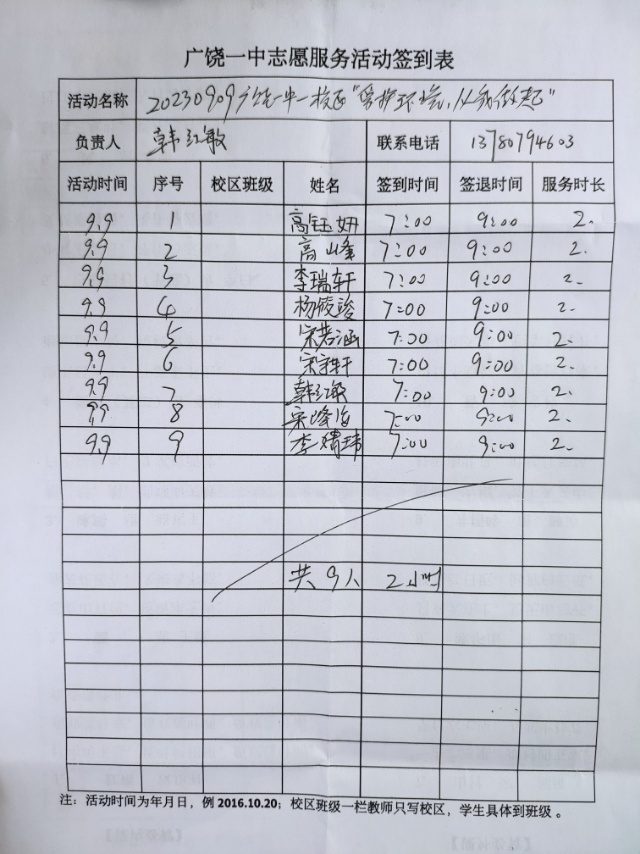 广饶一中志愿服务活动签到表
活动名称 20230909广饶一中一校区"爱护环境,从我做起"
负责人 韩红敏 联系电话 13780794603
活动时间 序号 校区班级 姓名 签到时间 签退时间 服务时长
9.9 1 高钰妍 7:00 9:00 2.
9.9 2 高山峰 7:00 9:00 2.
9.9 3 李瑞轩 7:00 9:00 2.
9.9 4 杨筱骏 7:00 9:00 2.
9.9 5 宋若涵 7:00 9:00 2.
9.9 6 宋轩 7:00 9:00 2.
9.9 7 韩红敏 7:00 9:00 2.
9.9 8 宋峰 7:00 9:00 2.
9.9 9 李玮 7:00 9:00 2.
共9人 2小时
注:活动时间为年月日,例 2016.10.20;校区班级一栏教师只写校区,学生具体到班级。